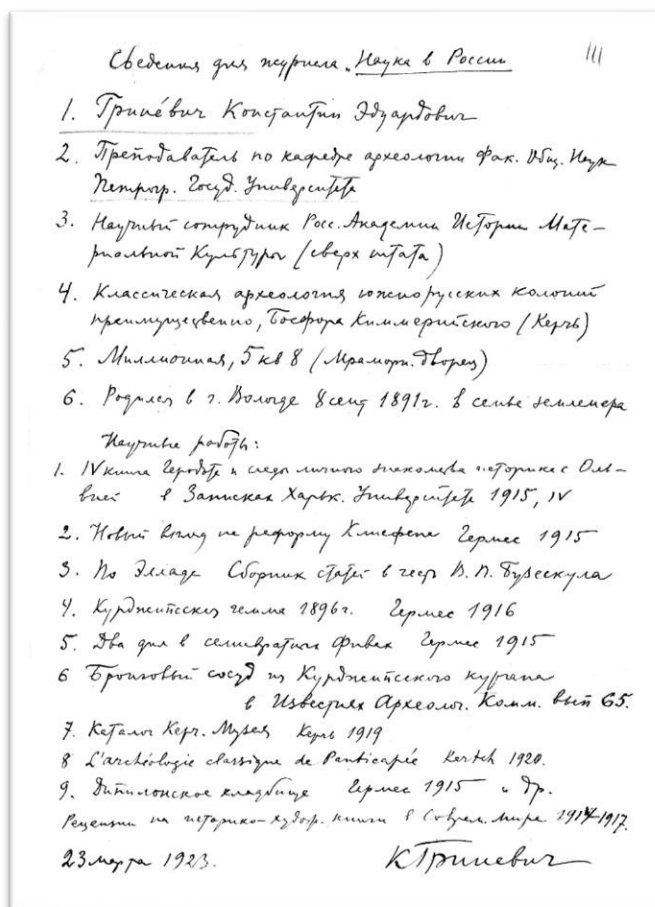 Сведения для журнала "Наука в России
111
1. Гриневич Константин Эдуардович
2. Преподаватель по кафедре археологии Фак. Общ. Наук
Петрогр. Госуд. Университета
3. Научный сотрудник Росс. Академии Истории Мате-
риальной Культуры (сверх штата)
4. Классическая археология южнорусских колоний
преимущественно, Босфора Киммерийского (Керчь)
5. Миллионная, 5 кв 8 (Мраморн. Дворец)
6. Родился в г. Вологде 8 сент 1891 г. в семье землемера
Научные работы:
1. IV книга Геродота и следы личного знакомства историка с Оль-
вией в Записках Харьк. Университета 1915, IV
2. Новый взгляд на реформу Клисфена Гермес 1915
3. По Элладе Сборник статей в честь В. П. Бузескула
4. Курджипсская гемма 1896 г. Гермес 1916
5. Два дня в семивратных Фивах Гермес 1915
6 Бронзовый сосуд из Курджипсского кургана
в Известиях Археолог. Комм. вып 65.
7. Каталог Керч. Музея Керчь 1919
8 L'archéologie classique de Panticapée Kertch 1920.
9. Дипилонское кладбище Гермес 1915 и др.
Рецензии на историко-худож. книги в Соврем. Мире 1914-1917.
23 марта 1923. КГриневич